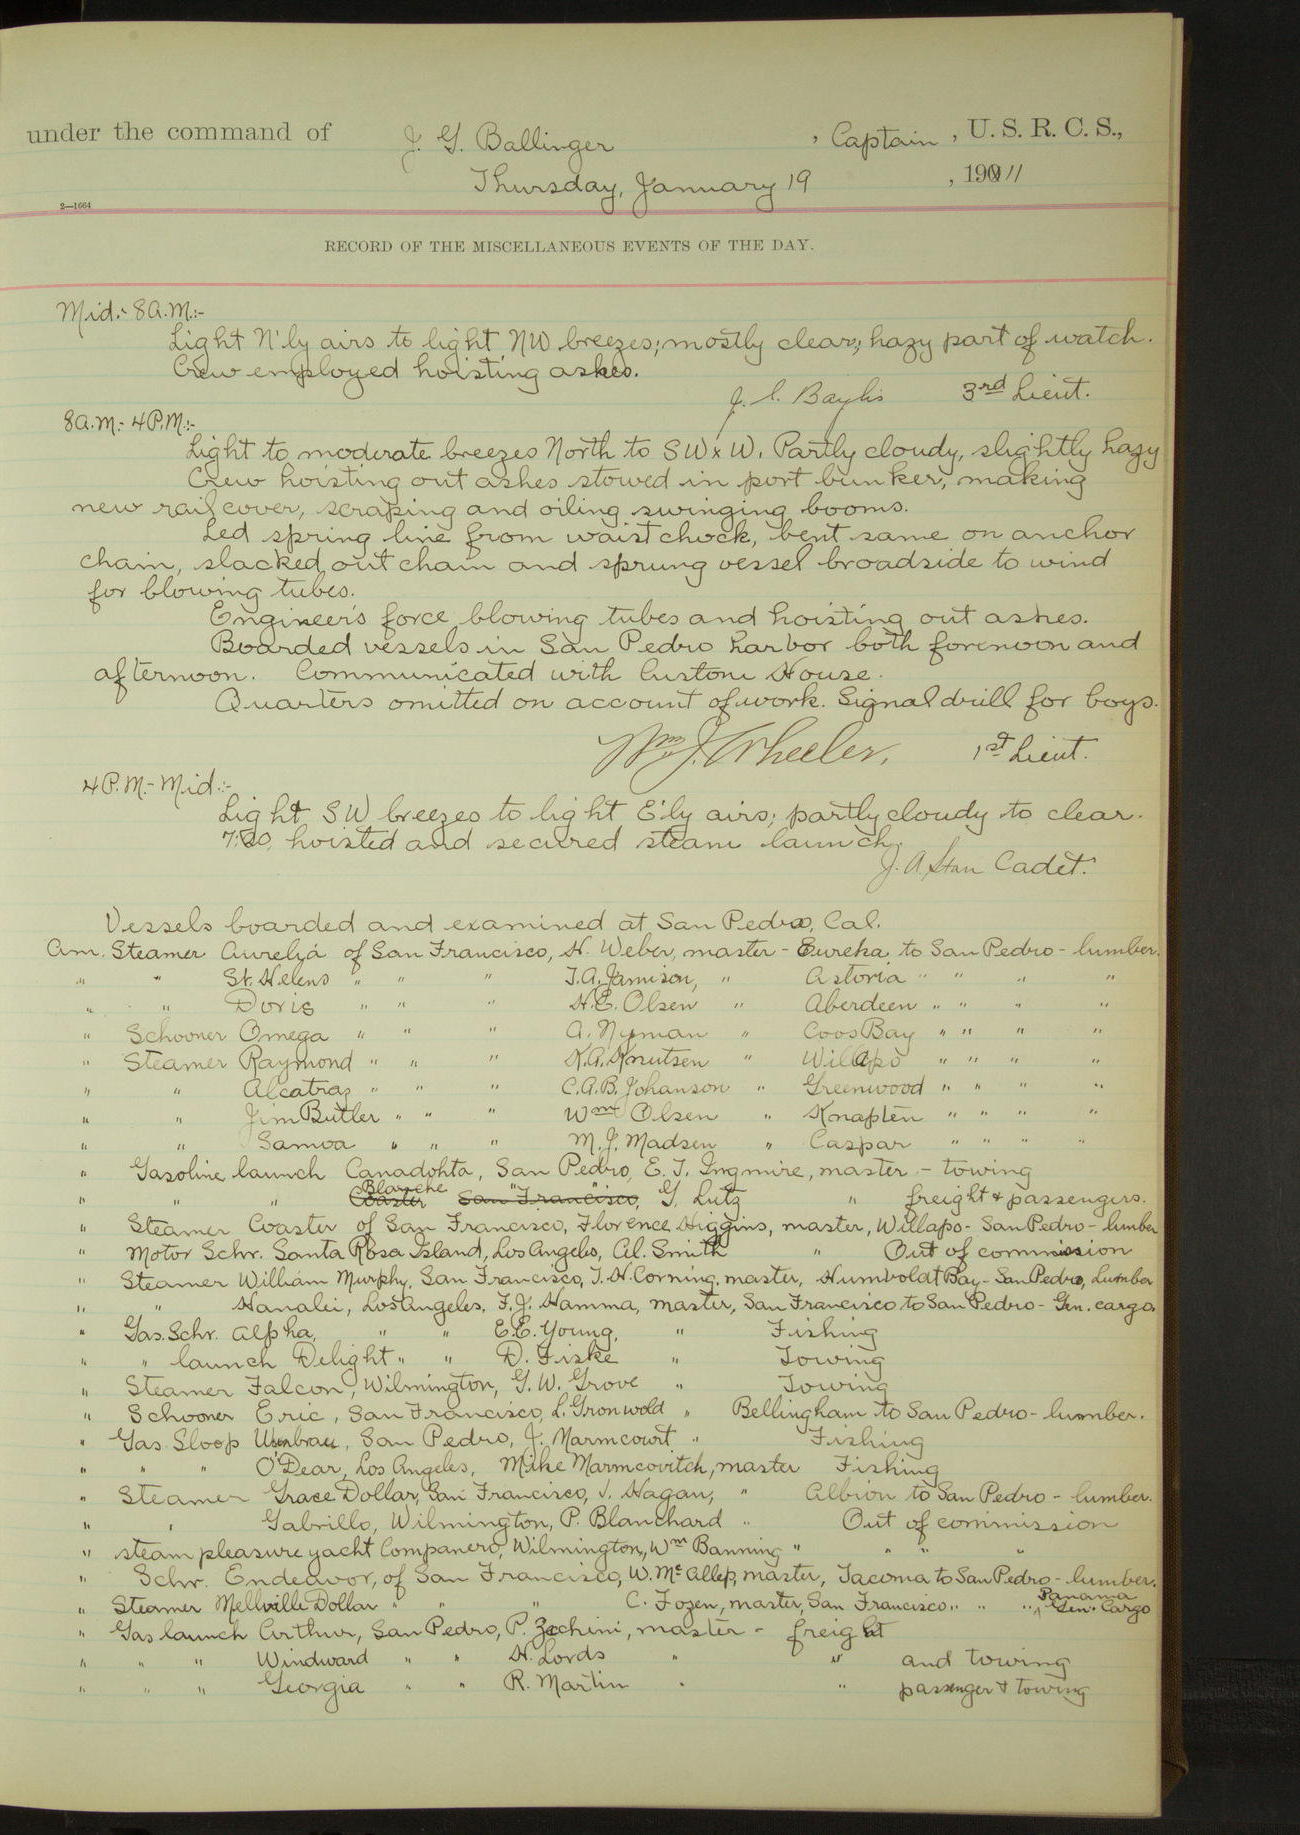 under the command of J. G. Ballinger, Captain, U. S. R. C. S.,
Thursday, January 19, 1911
2—1664
RECORD OF THE MISCELLANEOUS EVENTS OF THE DAY.
Mid.- 8 A.M.:-
Light N'ly airs to light NW breezes; mostly clear; hazy part of watch.
Crew employed hoisting ashes.
J. S. Baylis 3rd Lieut.
8 A.M.- 4 P.M.:-
Light to moderate breezes North to SW x W. Partly cloudy, slightly hazy
Crew hoisting out ashes stowed in port bunker, making
new rail cover, scraping and oiling swinging booms.
Led spring line from waist chock, bent same on anchor
chain, slacked out chain and sprung vessel broadside to wind
for blowing tubes.
Engineer's force blowing tubes and hoisting out ashes.
Boarded vessels in San Pedro harbor both forenoon and
afternoon. Communicated with Custom House.
Quarters omitted on account of work. Signal drill for boys.
Wm J. Wheeler, 1st Lieut.
4 P.M.- Mid:-
Light SW breezes to light E'ly airs; partly cloudy to clear.
hoisted and secured steam launch.
J. A. Starr Cadet.
Vessels boarded and examined at San Pedro, Cal.
Am. Steamer Aurelia of San Francisco, H. Weber, master - Eureka to San Pedro - lumber.
" " St. Helens " " " T. A. Jamison, " Astoria " " " "
" " Doris " " " H. E. Olsen " Aberdeen " " " "
" Schooner Omega " " " A. Nyman " Coos Bay " " " "
" Steamer Raymond " " " K. A. Knutsen " Willapo " " " "
" " Alcatraz " " " C. A. B. Johanson " Greenwood " " " "
" " Jim Butler " " " Wm Olsen " Knapten " " " "
" " Samoa " " " M. J. Madsen " Caspar " " " "
" Gasoline launch Canadohta, San Pedro, E. T. Ingmire, master - towing
" " " Coaster Blanche San Francisco, " " G. Lutz " freight & passengers.
" Steamer Coaster of San Francisco, Florence Higgins, master, Willapo - San Pedro - lumber
" Motor Schr. Santa Rosa Island, Los Angeles, Al. Smith " Out of commission
" Steamer William Murphy, San Francisco, T. H. Corning, master, Humboldt Bay - San Pedro, Lumber
" " Hanalei, Los Angeles, F. J. Hamma, master, San Francisco to San Pedro - Gen. cargo.
" Gas. Schr. Alpha, " " E. E. Young, " Fishing
" " launch Delight " " D. Fiske " Towing
" Steamer Falcon, Wilmington, G. W. Grove " Towing
" Schooner Eric, San Francisco, L. Gronwold " Bellingham to San Pedro - lumber.
" Gas Sloop San Pedro, J. Marmcourt " Fishing
" " " O'Dear, Los Angeles, Mike Marmcovitch, master Fishing
" Steamer Grace Dollar, San Francisco, T. Hagan, " Albion to San Pedro - lumber.
" " Gabrillo, Wilmington, P. Blanchard " Out of commission
" steam pleasure yacht Companero, Wilmington, Wm Banning " " " "
" Schr. Endeavor, of San Francisco, W. McAllep, master, Tacoma to San Pedro - lumber.
" Steamer Mellville Dollar " " " C. Fozen, master, San Francisco " " " Panama Gen. Cargo
" Gas launch Arthur, San Pedro, P. Zechini, master - freight
" " " Windward " " H. Lords " " and towing
" " " Georgia " " R. Martin " " passenger & towing